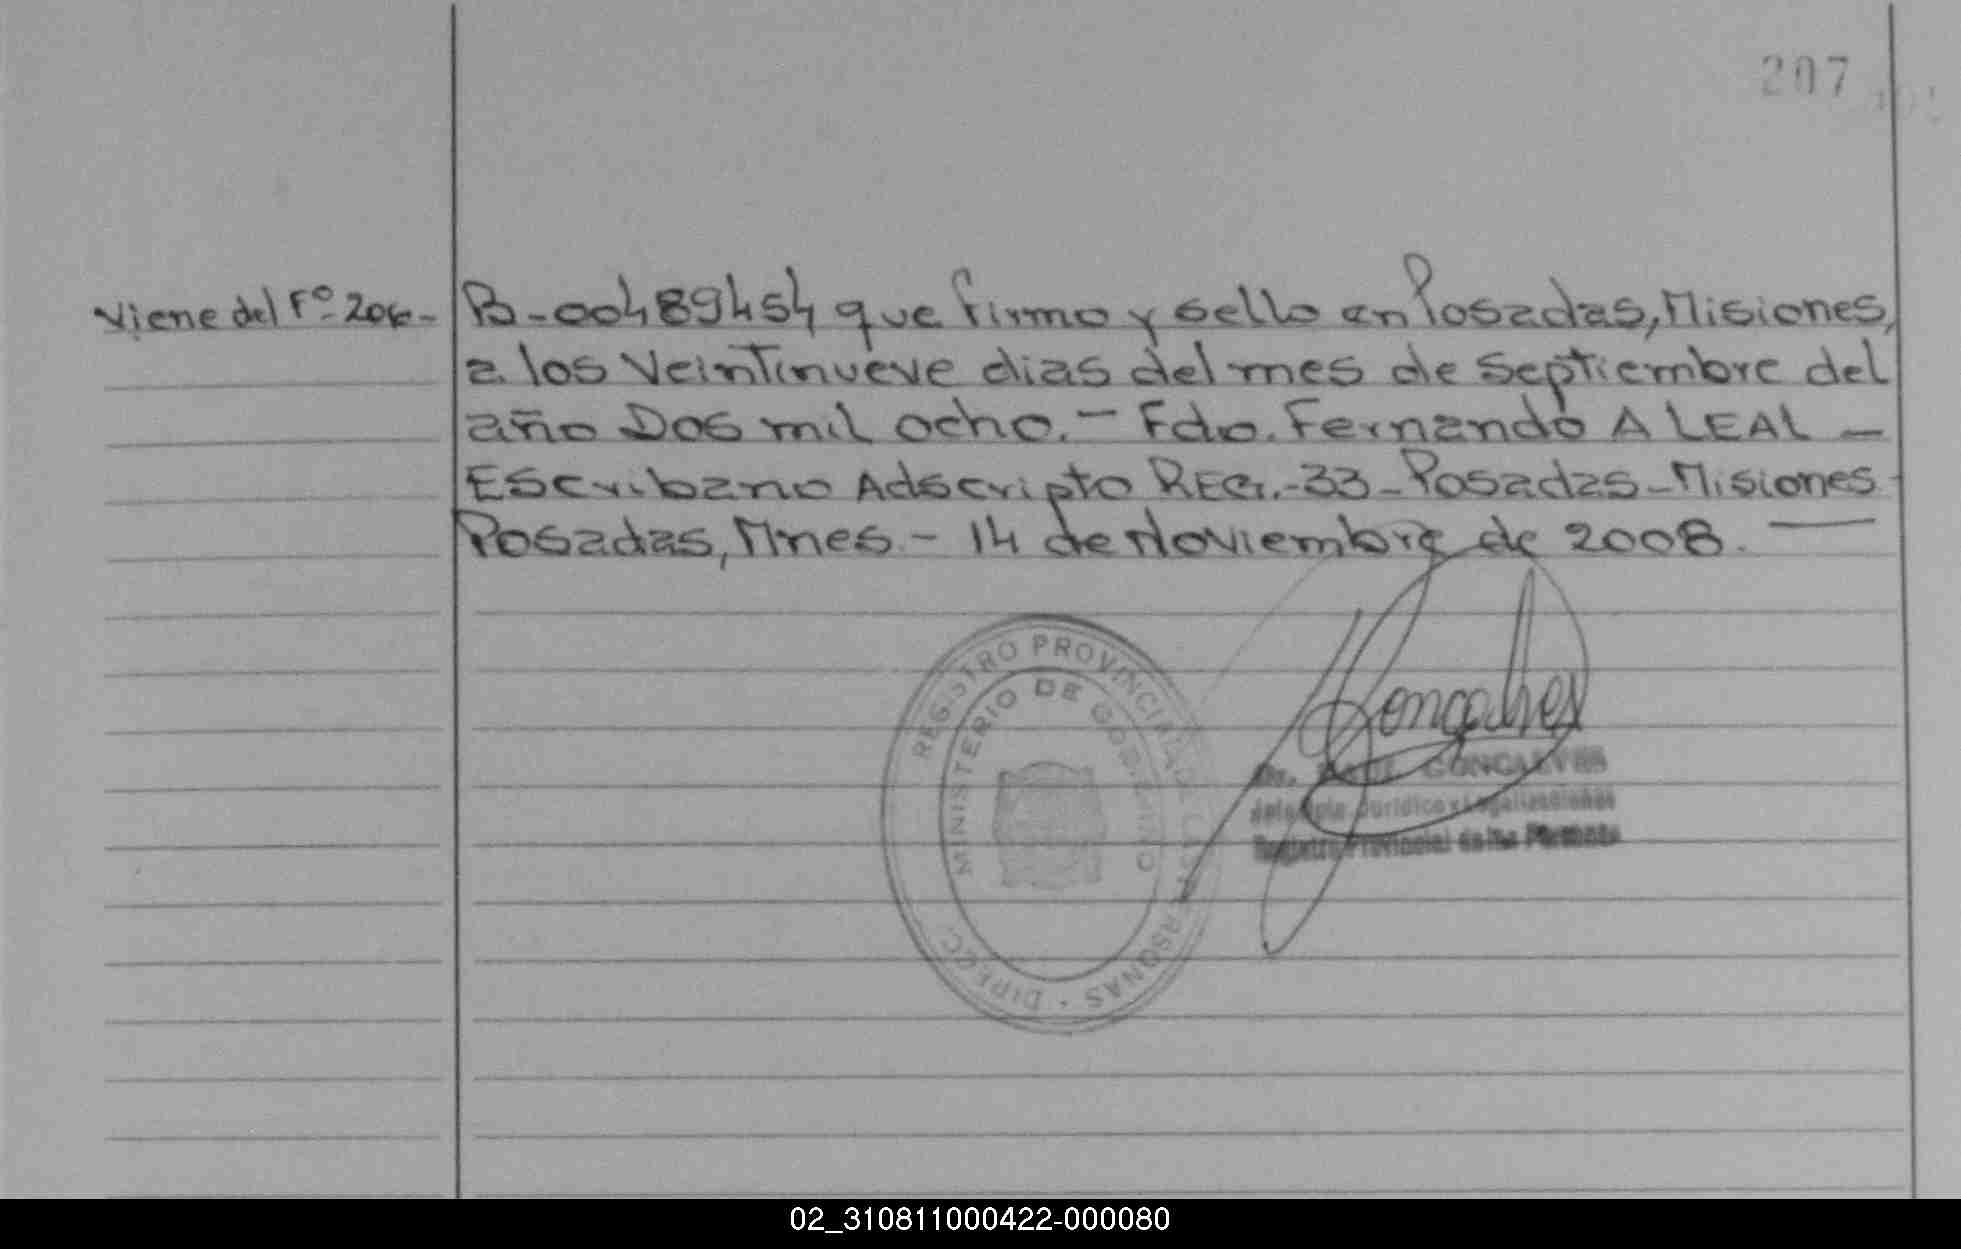 207
Viene del Fº 206-
B-00489454 que firmo y sello en Posadas, Misiones,
a los veintinueve dias del mes de septiembre del
año Dos mil ocho.- Fdo. Fernando A LEAL -
Escribano Adscripto REG.-33-Posadas-Misiones-
Posadas, Mnes.- 14 de Noviembre de 2008. —
REGISTRO PROVINCIAL DE LAS PERSONAS · DIRECC.
MINISTERIO DE GOBIERNO
Goncalves
GONCALVES
Jurídico y Legalizaciones
Registro Provincial de las Personas
02_310811000422-000080